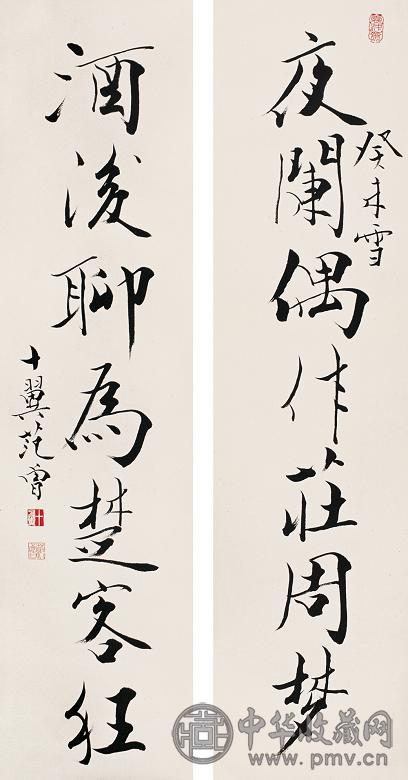 夜闌偶作莊周夢
癸未雪
酒後聊為楚客狂
十翼范曾
中华收藏网
www.pmv.cn